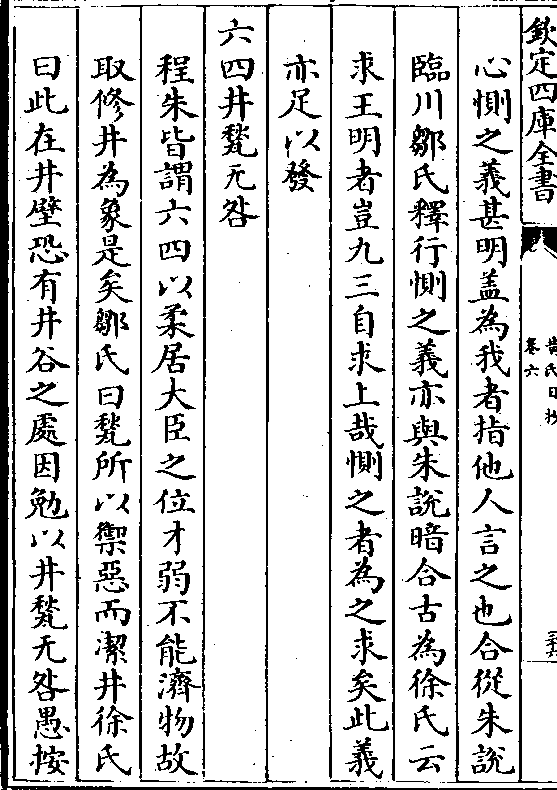 欽定四庫全書
黄氏日抄
卷六
心惻之義甚明盖為我者指他人言之也合從朱說
臨川鄒氏釋行惻之義亦與朱說暗合古為徐氏云
求王明者豈九三自求上哉惻之者為之求矣此義
亦足以發
六四井甃无咎
程朱皆謂六四以柔居大臣之位才弱不能濟物故
取修井為象是矣鄒氏曰甃所以禦惡而潔井徐氏
曰此在井壁恐有井谷之處因勉以井甃无咎愚按